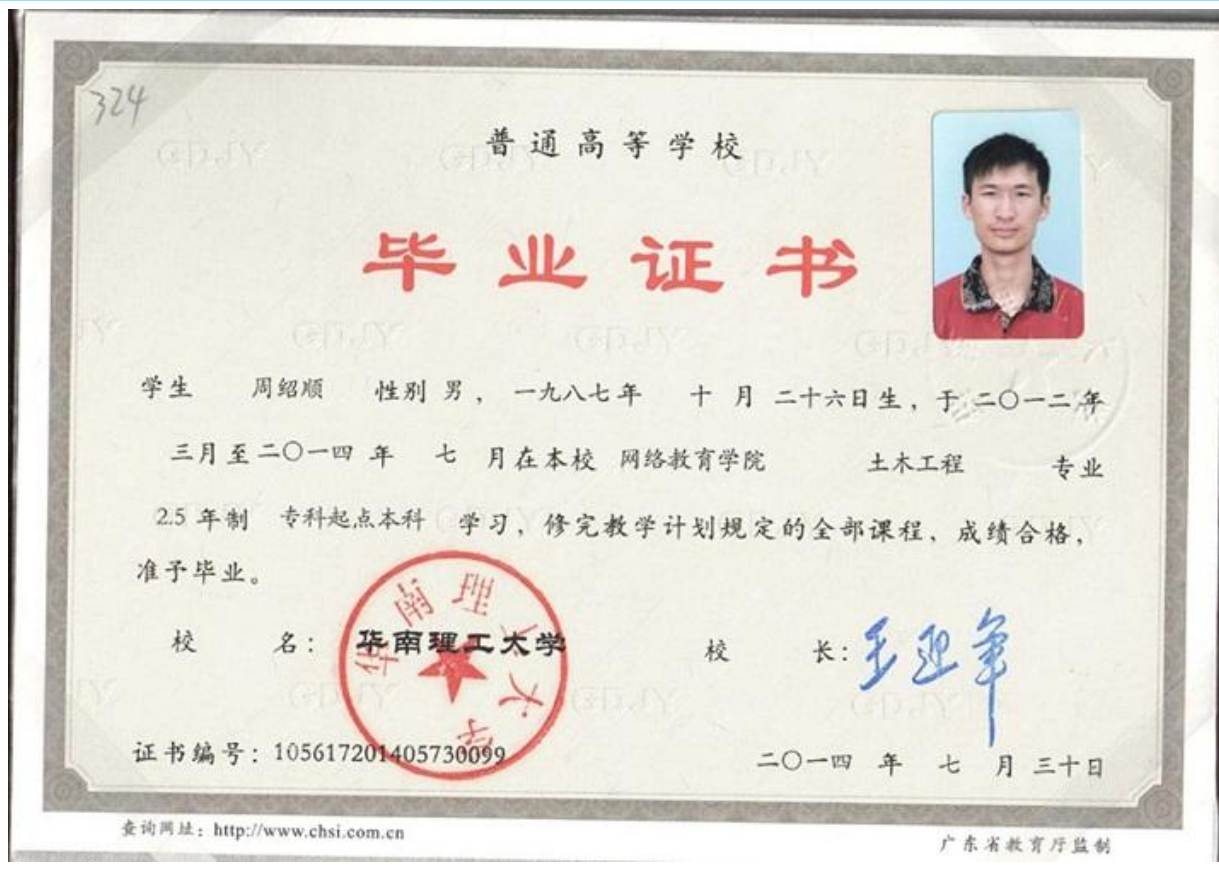 324
普通高等学校
毕业证书
学生 周绍顺 性别 男，一九八七年 十月二十六日生，于二〇一二年
三月至二〇一四年 七 月在本校 网络教育学院 土木工程 专业
2.5 年制 专科起点本科 学习，修完教学计划规定的全部课程，成绩合格，
准予毕业。
校 名：华南理工大学 校 长：王迎军
华南理工大学
证书编号：105617201405730099 二〇一四 年 七 月 三十日
查询网址：http://www.chsi.com.cn 广东省教育厅监制
GDJY GDJY GDJY